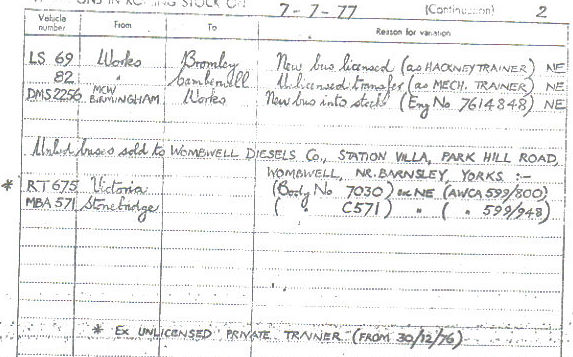 ONS IN ROLLING STOCK ON 7-7-77 (Continuation) 2
Vehicle number From To Reason for variation
LS 69 Works Bromley New bus licensed (as HACKNEY TRAINER) NE
82 " Camberwell Unlicensed transfer (as MECH. TRAINER) NE
DMS2256 MCW BIRMINGHAM Works New bus into stock (Eng No 7614848) NE
Unlicd buses sold to WOMBWELL DIESELS Co., STATION VILLA, PARK HILL ROAD,
WOMBWELL, NR. BARNSLEY, YORKS :-
* RT 675 Victoria (Body No 7030) NE (AWCA 599/800)
MBA 571 Stonebridge ( " C571) " ( " 599/948)
* EX UNLICENSED PRIVATE TRAINER (FROM 30/12/76)